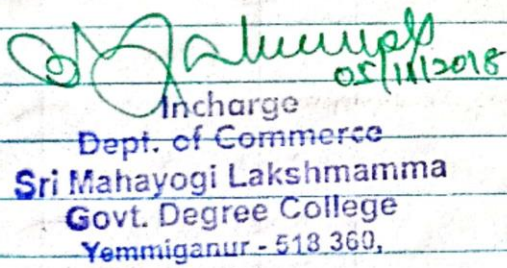 05/11/2018
Incharge
Dept. of Commerce
Sri Mahayogi Lakshmamma
Govt. Degree College
Yemmiganur - 518 360,